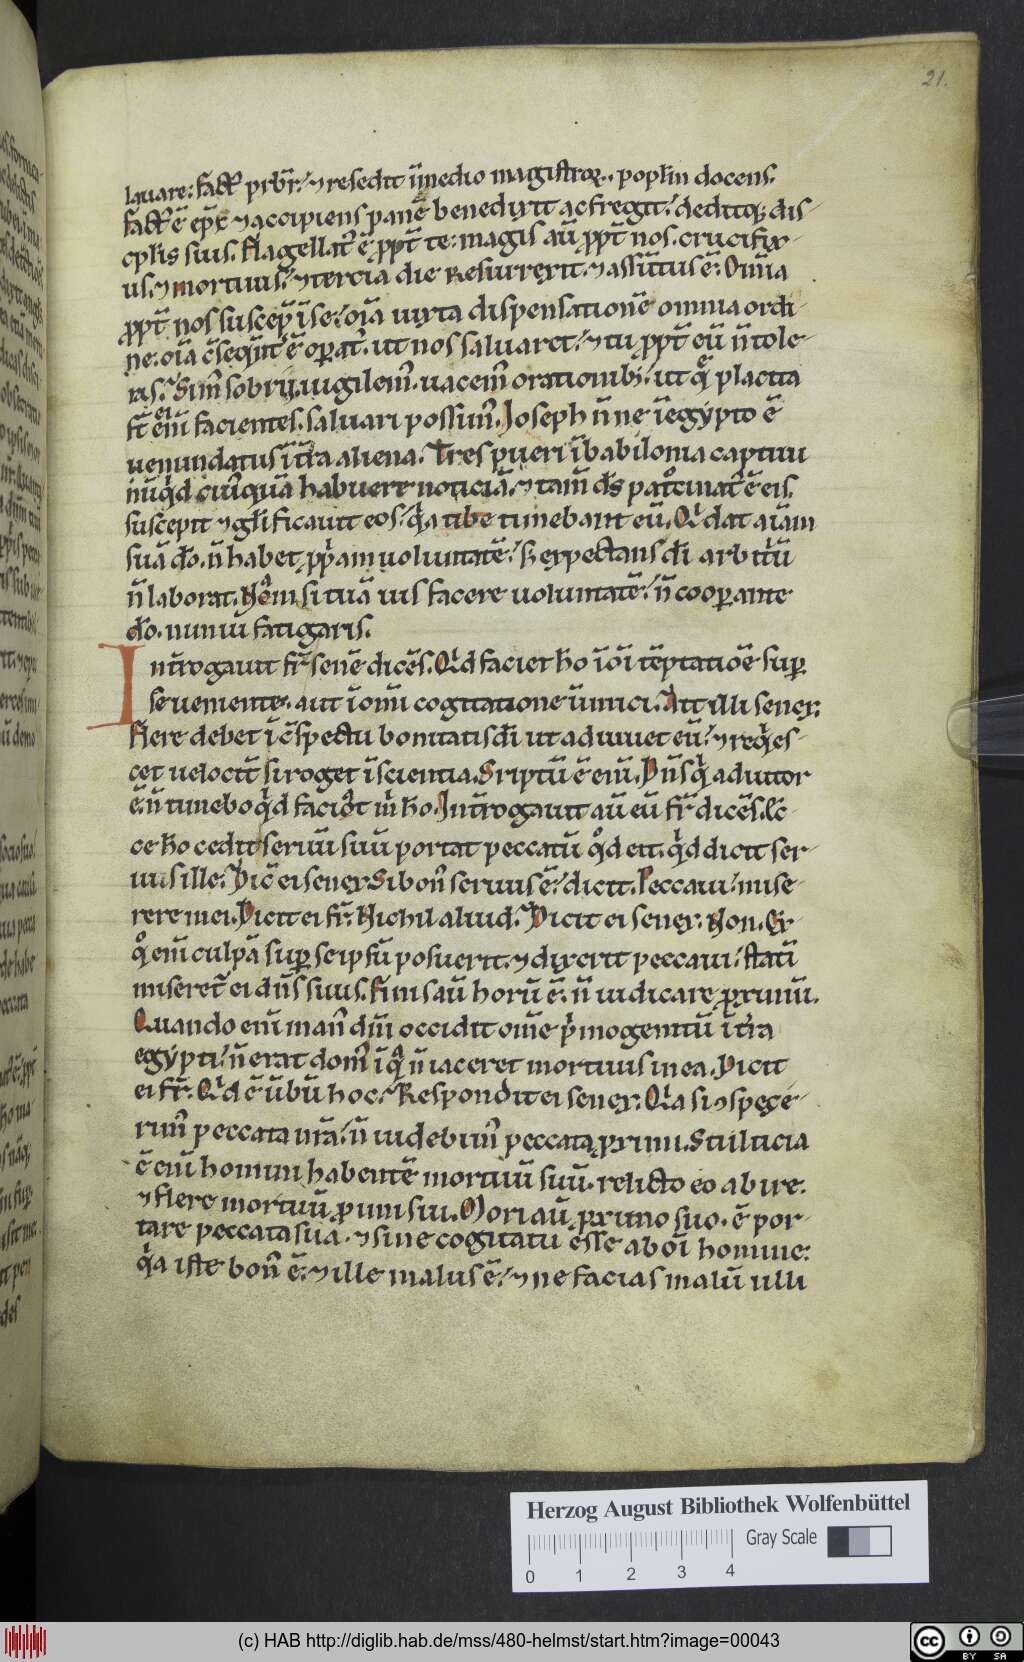 21.
lauare: fact᷑ prb̄r. ⁊ resedit ī medio magistroꝝ. popl̄m docens.
fact᷑ ē ep̄c ⁊ accipiens panē benedixit ac fregit. deditq; dis-
cpl̄is suis. flagellat᷑ ē ꝓpt̄ te: magis aū ꝓpt̄ nos. crucifix-
us. ⁊ mortuus. ⁊ tercia die Resurrexit. ⁊ assūtus ē. Om̄ia
ꝓpt̄ nos suscep̄ ī se. oīa iuxta dispensationē omnia ordi-
ne. oīa cseqnt᷑ ē oꝑat᷑. ut nos saluaret. ⁊ tu ꝓpt̄ eū n̄ tole-
ras. Sim᷑ sobrii. uigilem᷑. uacem᷑ orationib;. ut q̄ placita
st̄ ei facientes. saluari possum᷑. Ioseph n̄ne ī egypto ē
uenundatus ī t̄ra aliena. Tres pueri ī babilonia captiui
nūqd cuīquā habuere noticiā. ⁊ tam̄ ds̄ patͦcinat᷑ ē eis.
suscepit ⁊ gl̄ificauit eos. qͥa timebant eū. Qͥ dat aīam
suā do. n̄ habet pp̄am uoluntatē. s; expectans dī arbitͥū
n̄ laborat. Nam si tuā uis facere uoluntatē. n̄ cooꝑante
do. nimiū fatigaris.
Int̄rogauit fr̄ senē dicēs. Qͥd faciet ho ī oī tēptatiōe suꝑ
se ueniente. aut ī omi cogitatione inimici. Ait illi senex.
Flere debet ī cspectu bonitatis dī ut adiuuet eū. ⁊ reqͥes-
cet uelocit̄ si roget ī scientia. Scriptū ē eni. Dn̄s mͥ adiutor
ē. n̄ timebo qͥd faciat mͥ ho. Int̄rogauit aū eū fr̄ dicēs. Ec-
ce ho cedit seruū suū portat peccatū qͦd eit. qͥd dicit ser-
uus ille. Dic̄ ei senex Si bon᷑ seruus ē. dicit. Peccaui. mise-
rere mei. Dicit ei fr̄. Nichil aliud. Dicit ei senex. Non. Ex
qͦ eni culpā suꝑ seipsū posuerit. ⁊ dixerit peccaui. statī
miseret̄ ei dn̄s suus. finis aū horū ē. n̄ iudicare proximū.
Quando eni man᷑ dn̄i occidit om̄e pͥmogenitū ī t̄ra
egypti. n̄ erat dom᷑ ī qͣ n̄ iaceret mortuus in ea. Dicit
ei fr̄. Qͥd ē ūbū hoc. Respondit ei senex. Qͥa si ⁊spexe-
rim᷑ peccata nr̄a. n̄ uidebim᷑ peccata proximi. Stulticia
ē eni homini habentē mortuū suū. relicto eo abire.
⁊ flere mortuū proximi sui. Mori aū proximo suo. ē por-
tare peccata sua. ⁊ sine cogitatu esse ab oī homine:
qͥa iste bon᷑ ē. ⁊ ille malus ē. ⁊ ne facias malū ulli
Herzog August Bibliothek Wolfenbüttel
Gray Scale
0 1 2 3 4
(c) HAB http://diglib.hab.de/mss/480-helmst/start.htm?image=00043
cc BY SA